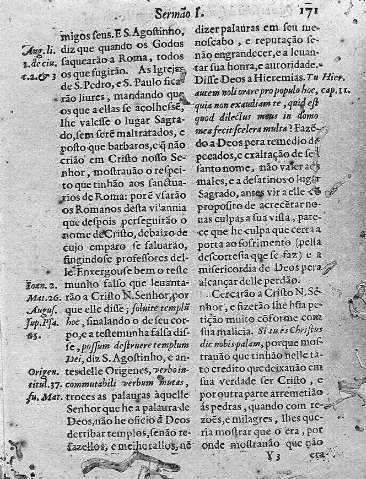 Sermão I.
171
migos seus. E S. Agostinho,
Aug. li.
diz que quando os Godos
1. de ciu.
saquearão a Roma, todos
c. 2. & 3
os que fugirão. Às Igrejas
de S. Pedro, e S. Paulo fica
rão liures, mandando que
os que a ellas se acolhesse,
lhe valesse o lugar Sagra-
do, sem serẽ maltratados, e
posto que barbaros, e q̃ não
crião em Cristo nosso Se-
nhor, mostrauão o respei-
to que tinhão aos sanctua-
rios de Roma: porẽ vsarão
os Romanos desta vilannia
que despois perseguirão o
nome de Cristo, debaixo de
cujo emparo se saluarão,
fingindose professores del-
le. Enxergouse bem o teste
Ioan. 2.
munho falso que leuanta-
Mat. 26.
rão a Cristo N. Senhor, por
August.
que elle disse; soluite templũ
sup. Psa.
hoc, sinalando o de seu cor-
65.
po, e a testeminha falsa dis-
se, possum destruere templum
Dei, diz S. Agostinho, e an-
Origen.
tes delle Origenes, verbo in-
titul. 37.
commutabili verbum mutas,
su. Mat.
troces as palauras àquelle
Senhor que he a palaura de
Deos, não he oficio ã Deos
derribar templos, senão re-
fazellos, e melhorallos, nẽ
dizer palauras em seu me-
noscabo, e reputação se-
não engrandecer, e a leuan-
tar sua honra, e autoridade.
Disse Deos a Hieremias. Tu
Hier.
autem noli orare pro populo hoc,
cap. 11.
quia non exaudiam te, quid est
quod dilectus meus in domo
mea fecit scelera multa? Fazẽ-
do a Deos pera remedio de
pecados, e exaltação de seu
santo nome, não valer aos
males, e a desatinos o lugar
Sagrado, antes vir a elle cõ
proposito de acrecẽtar no-
uas culpas a sua vista, pare-
ce que he culpa que cerra a
porta ao sofrimento (pella
descortesia que se faz) e a
misericordia de Deos pera
alcançar delle perdão.
Cercarão a Cristo N. S.
nhor, e fizerão lhe hũa pe-
tição muito cõforme com
sua malicia. Si tu es Christus
dic nobis palam, porque mos-
trauão que tinhão nelle ta-
to credito que deixauão em
sua verdade ser Cristo, e
por outra parte arremetião
às pedras, quando com re-
zoẽs, e milagres, lhes que-
ria mostrar que o era, por
onde mostrauão que não
Y 3
era